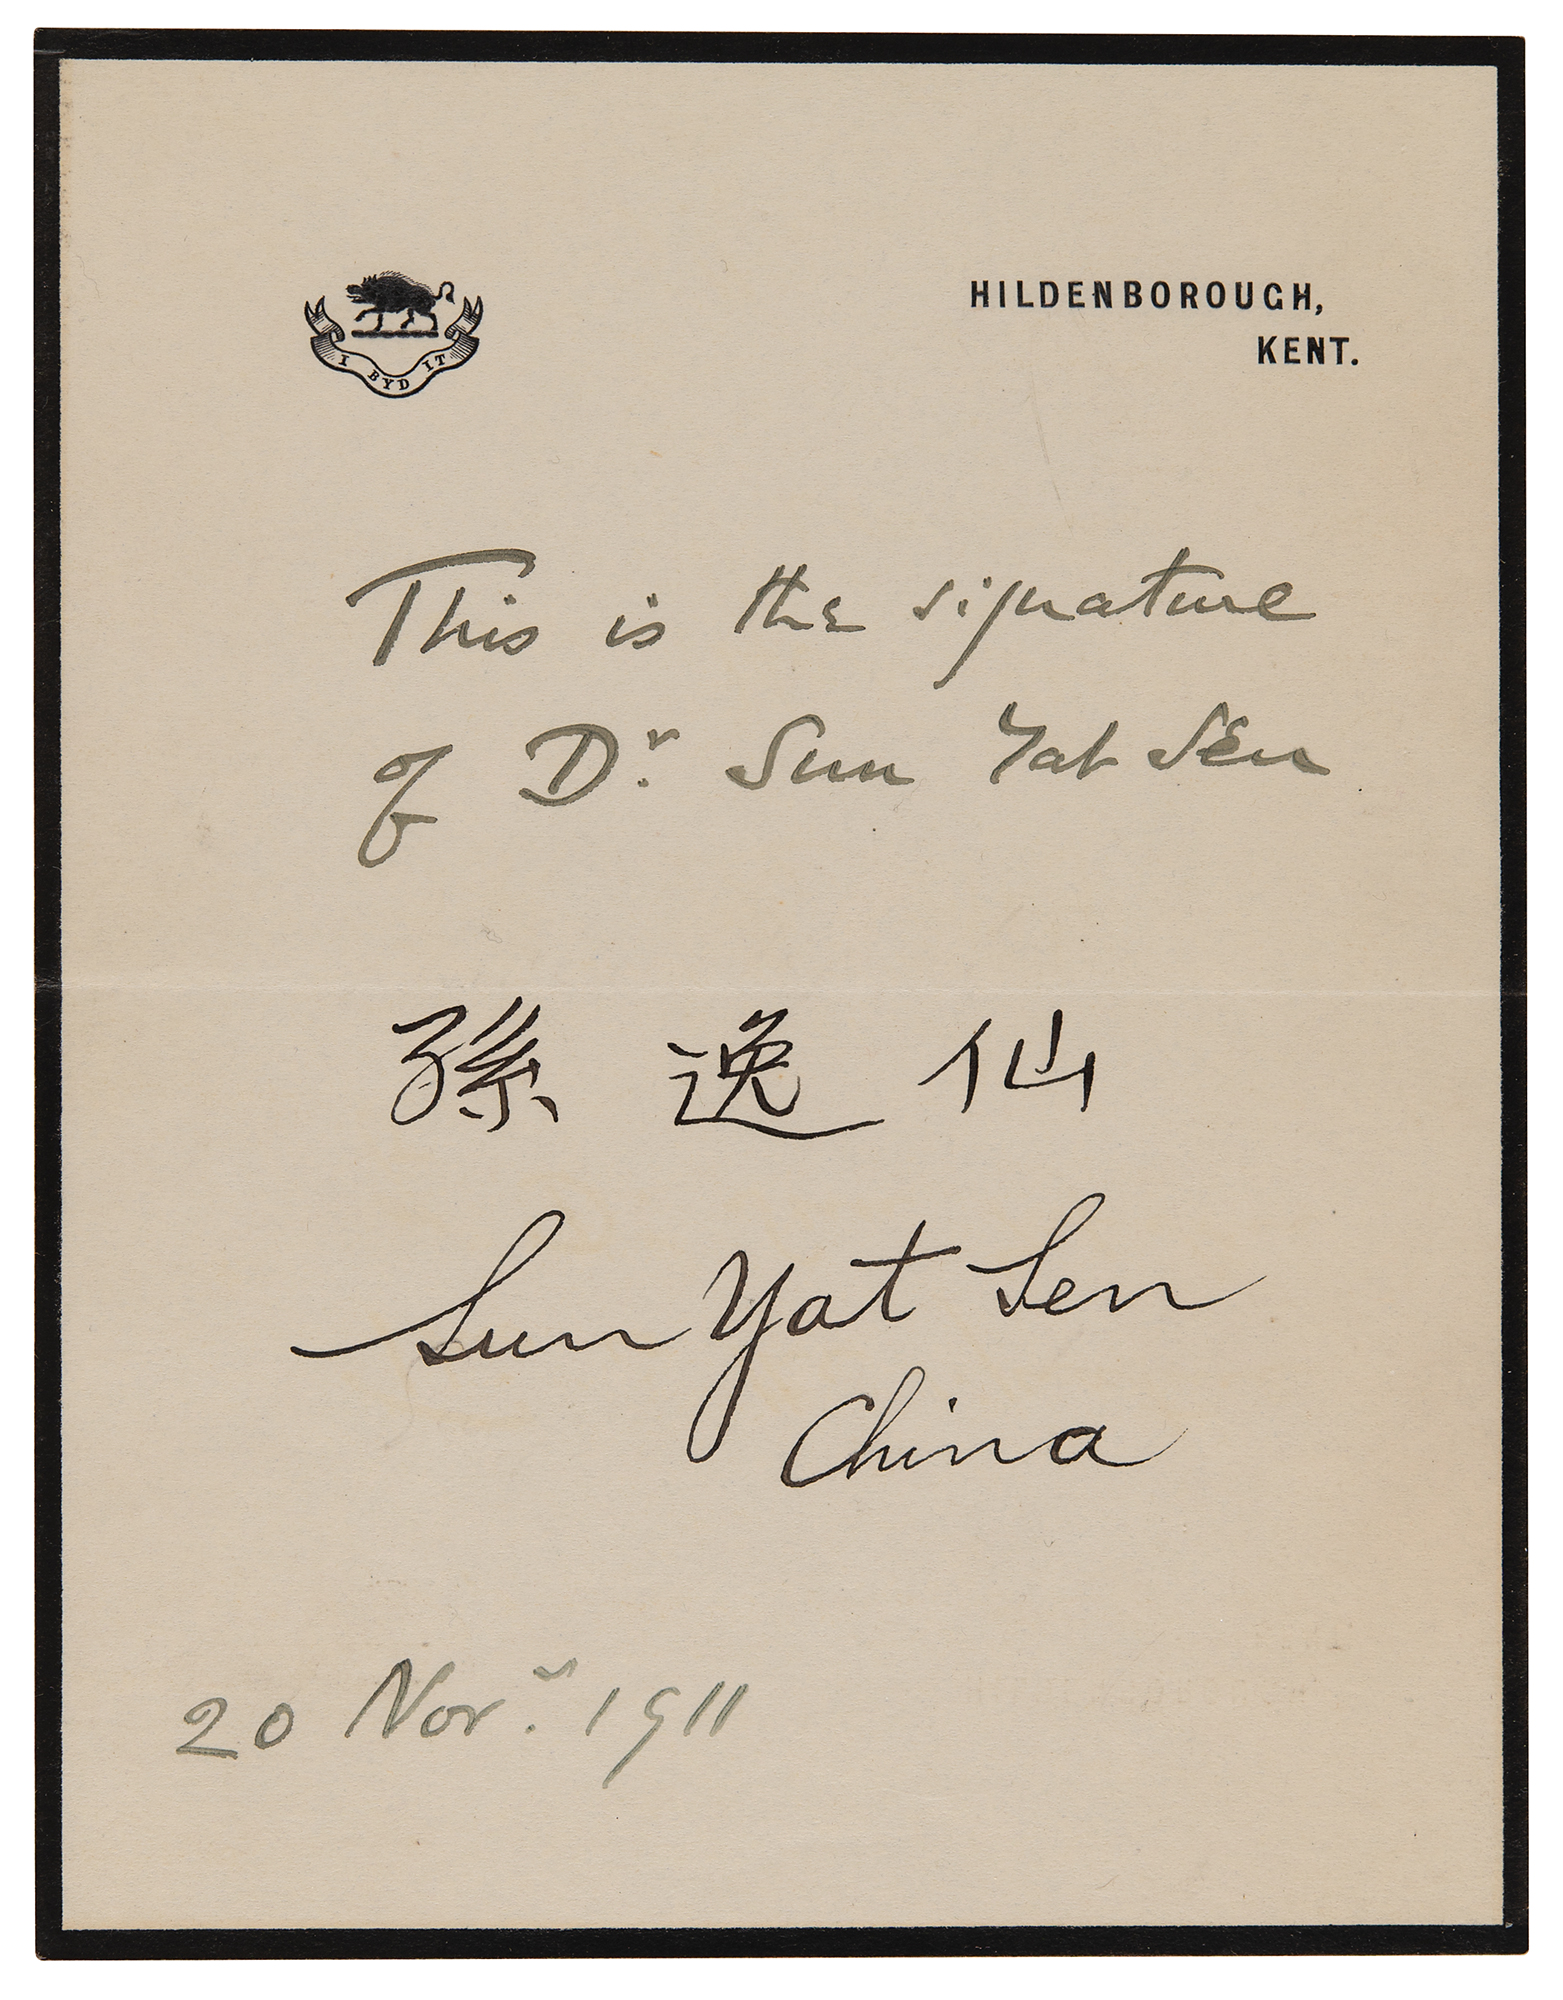 I BYD IT
HILDENBOROUGH,
KENT.
This is the signature
of Dr. Sun Yat Sen
孫 逸 仙
Sun Yat Sen
China
20 Novr. 1911